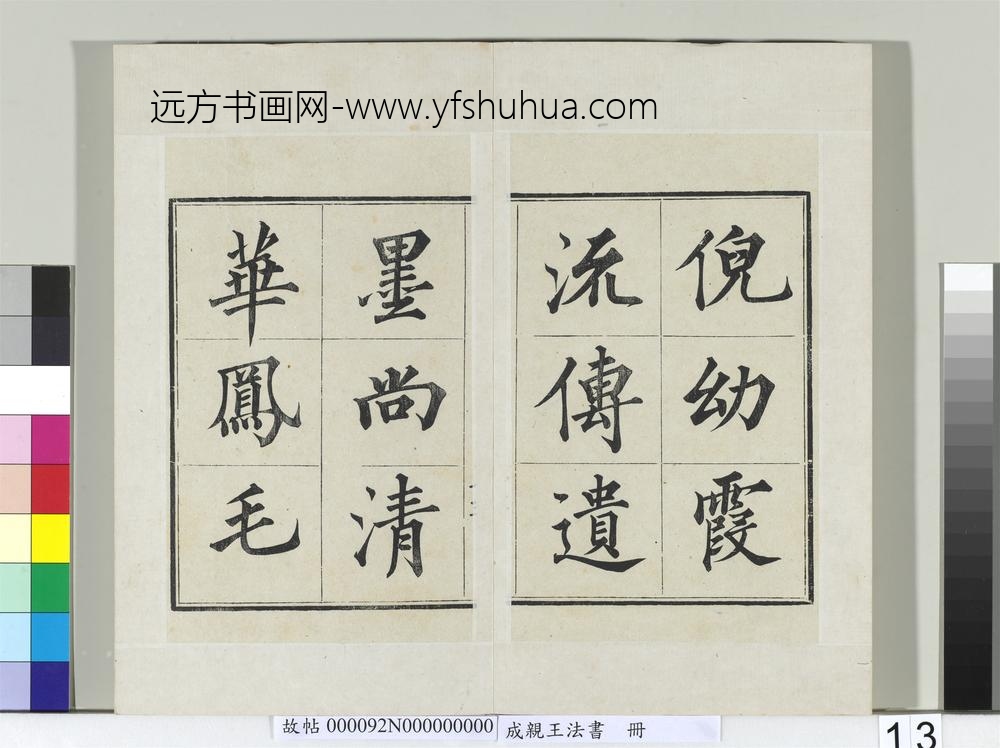 远方书画网-www.yfshuhua.com
倪幼霞
流傳遺
墨尚清
華鳳毛
故帖 000092N000000000 成親王法書 冊
13